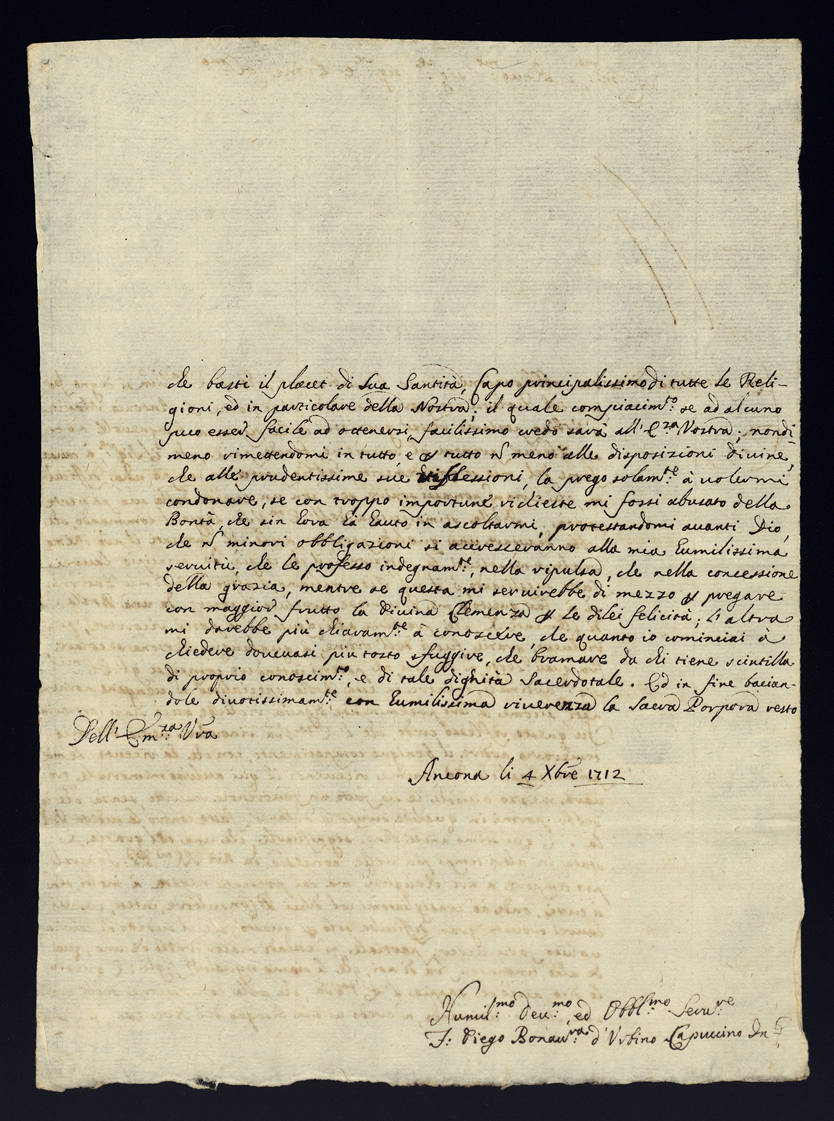 che basti il placet di Sua Santità, Capo principalissimo di tutte le Reli-
gioni, ed in particolare della Nostra, il quale compiacim.to se ad alcuno
puo esser facile ad ottenersi, facilissimo credo sarà all' E.za Nostra; nondi
meno rimettendomi in tutto, e p tutto ñ meno alle disposizioni divine,
che alle prudentissime sue riflessioni, la prego solam.te à volermi
condonare, se con troppo importune richieste mi fossi abusato della
Bontà, che sin hora hà hauto in ascoltarmi, protestandomi avanti Dio,
che ñ minori obbligazioni si accresceranno alla mia humilissima
servitù, che le professo indegnam.te, nella ripulsa, che nella concessione
della grazia, mentre se questa mi servirebbe di mezzo p pregare
con maggior frutto la divina Clemenza p le dilei felicità; l'altra
mi darebbe più chiaram.te à conoscere, che quanto io cominciai à
chiedere dovevasi piu tosto sfuggire, che bramare da chi tiene scintilla
di proprio conoscim.to, e di tale dignità Sacerdotale. Ed in fine bacian-
dole divotissimam.te con humilissima riverenza la Sacra Porpora resto
Dell' Em.za V̅ra
Ancona li 4 Xbre 1712
Humil.mo Dev.mo ed Obbl.mo Serv.re
F: Diego Bonav.ra d'Urbino Capuccino